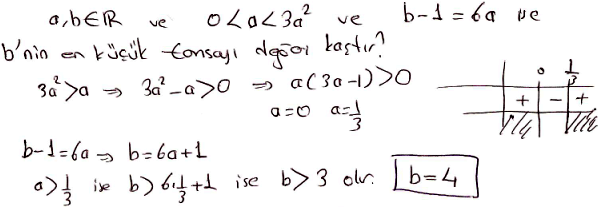 a,b∈ℝ ve 0<a<3a² ve b-1=6a ise
b'nin en küçük tamsayı değeri kaçtır?
3a²>a ⇒ 3a²-a>0 ⇒ a(3a-1)>0
a=0 a=1/3
0 1/3
+ - +
b-1=6a ⇒ b=6a+1
a>1/3 ise b>6·1/3+1 ise b>3 olur. b=4